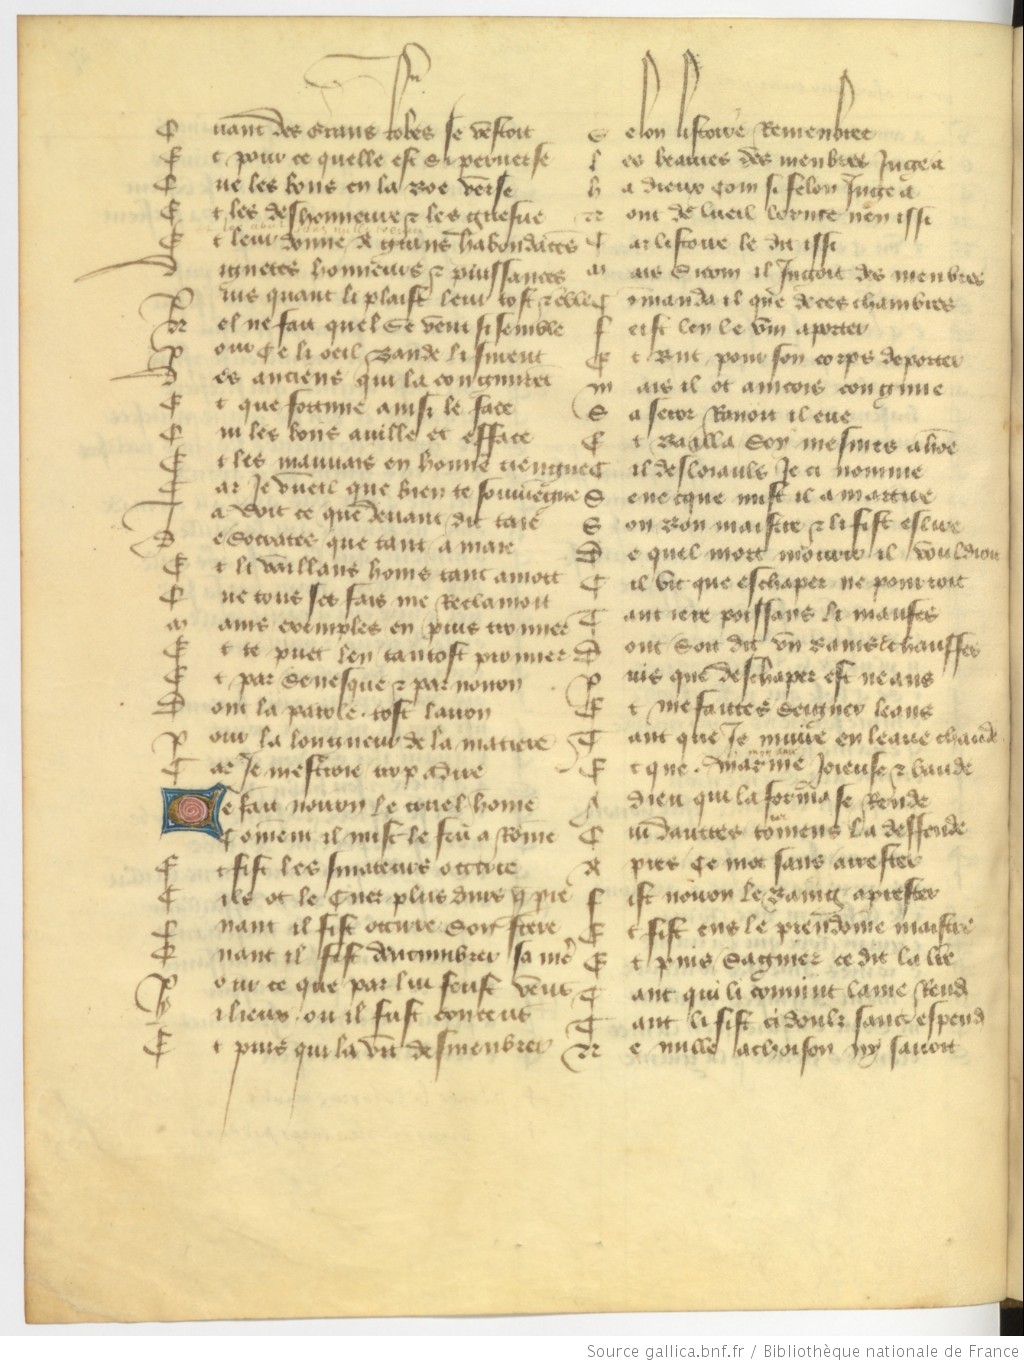 Q uant des grans robes se vestoit
E t pour ce quelle est si perverse
Q ue les bons en la boe verse
E t les deshonneure & les griefve
E t leur donne a grans habondaces
D ignetes honneurs & puissances
P uis quant li plaist leur tost & emble
N el ne scait quel se veut si semble
P our ce li oeil bande li furent
D es anciens qui la congnurent
E t que fortune ainsi le face
Q ui les bons aville et efface
E t les mauvais en honne tiengne
C ar Je vueil que bien te souviegne
J a soit ce que devant dit taie
D e Socrates que tant amaie
E t li vaillans homs tant amoit
Q ue tous ses fais me Reclamoit
M ains exemples en puis trouver
E t te puet len tantost prouver
E t par Senesque & par noiron
D ont la parole tost lairon
P our la longueur de la matiere
C ar Je mestroie trop a dire
D e fait noiron le cruel home
Comem il mist le feu a Rome
E t fist les senateurs occire
C ils ot le cuer plus durs q pire
Q uant il fist occire son frere
Q uant il fist desmembrer sa mere
P our ce que par lui fust veus
L i lieux ou il fust conceus
E t puis qui la vit desmenbrer
S elon listoire Remenbrer
L es beautes des menbres Jugea
H a dieux com si felon Juge a
N ont de lueil lerme nen issi
C ar listoire le dit issi
M ais si com il Jugoit des menbres
C ommanda il que de ces chambres
F eist len le vin aporter
E t but pour son corps deporter
M ais il ot aincois congnue
S a seror Ravoit il eue
E t bailla soy mesmes a home
C il desloiauls Je ci nomme
S enecque mist il a martire
S on bon maistre & li fist eslire
D e quel mort mourir il vouldroit
C il vit que eschaper ne pourroit
T ant iere poissans li maufes
D ont soit dit un bains eschauffes
P uis que deschaper est neans
E t me faites seigner leans
T ant que Je muire en leaue chaude
E t que marme Joieuse & baude
A dieu qui la forma se Rende
Q ui dautres tormens la deffende
A pres ce mot sans arrester
F ist noiron le baing aprester
E t fist ens le preudome maistre
E t puis sagnier ce dit la lre
T ant quil li convint lame Rend
T ant li fist ci doulr sanc espend
N e nulle achoison ny savoit